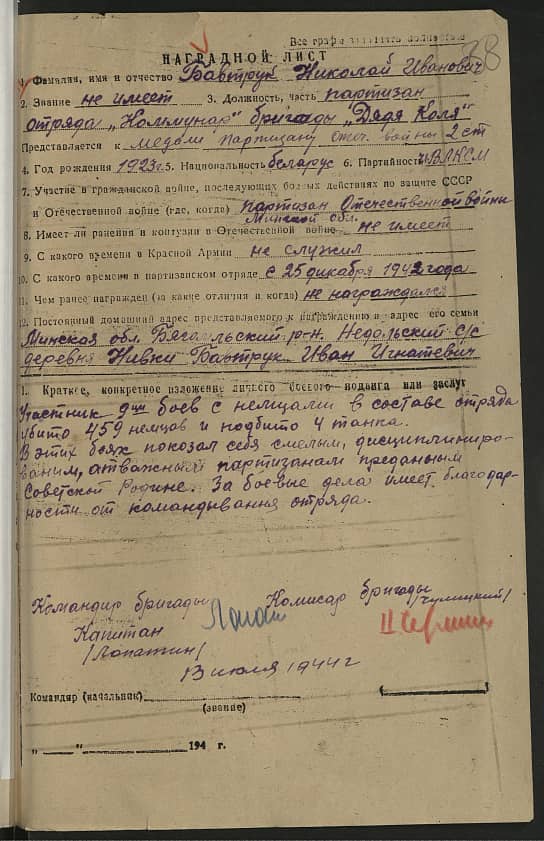 Все графы заполнять полностью
38
НАГРАДНОЙ ЛИСТ
1. Фамилия, имя и отчество Бавтрук Николай Иванович
2. Звание не имеет 3. Должность, часть партизан
отряда „Коммунар" бригады „Дядя Коля"
Представляется к медали Партизану Отеч. войны 2 ст
4. Год рождения 1923г. 5. Национальность беларус 6. Партийность ч. ВЛКСМ
7. Участие в гражданской войне, последующих боевых действиях по защите СССР
и Отечественной войне (где, когда) партизан Отечественной войны
Минской обл.
8. Имеет ли ранения и контузии в Отечественной войне не имеет
9. С какого времени в Красной Армии не служил
10. С какого времени в партизанском отряде с 25 дикабря 1942 года
11. Чем ранее награжден (за какие отличия и когда) не награждался
12. Постоянный домашний адрес представляемого к награждению и адрес его семьи
Минская обл. Бягомльский р-н. Недольский с/с
деревня Нивки Бавтрук Иван Игнатевич
1. Краткое, конкретное изложение личного боевого подвига или заслуг
Участник 9ти боев с немцами в составе отряда
убито 459 немцов и подбито 4 танка.
В этих боях показал себя смелым, дисциплиниро-
ваним, атважным партизанам преданым
Советской Родине. За боевые дела имеет благодар-
ности от командывания отряда.
Командир бригады Комисар бригады
Капитан /Чулицкий/
/Лопатин/
13 июля 1944 г
Командир (начальник)
(звание)
„ " 194 г.